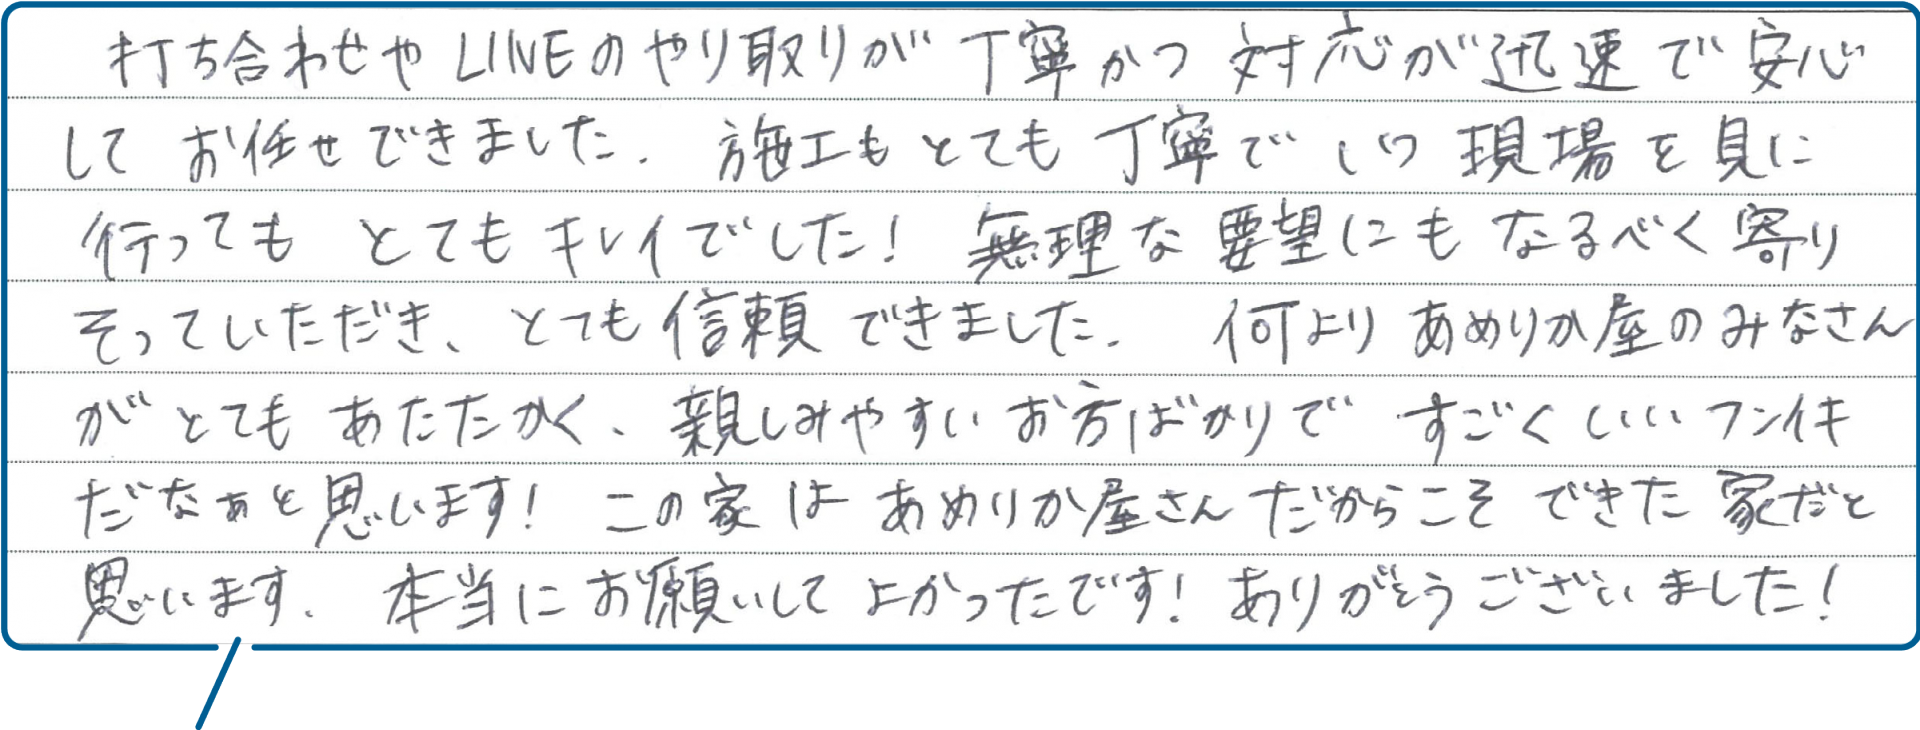 打ち合わせやLINEのやり取りが丁寧かつ対応が迅速で安心
してお任せできました。施工もとても丁寧でいつ現場を見に
行ってもとてもキレイでした!無理な要望にもなるべく寄り
そっていただき、とても信頼できました。何よりあめりか屋のみなさん
がとてもあたたかく、親しみやすいお方ばかりですごくいいフンイキ
だなぁと思います!この家はあめりか屋さんだからこそできた家だと
思います。本当にお願いしてよかったです!ありがとうございました!